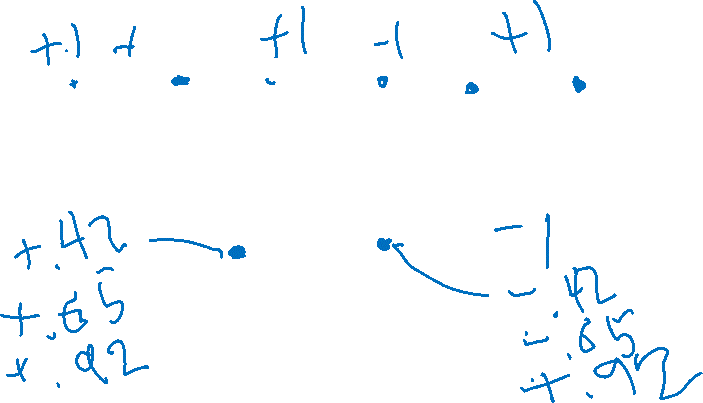 +.1 + +1 -1 +1
+.42
+.65
+.92
-1
-.42
-.65
+.92